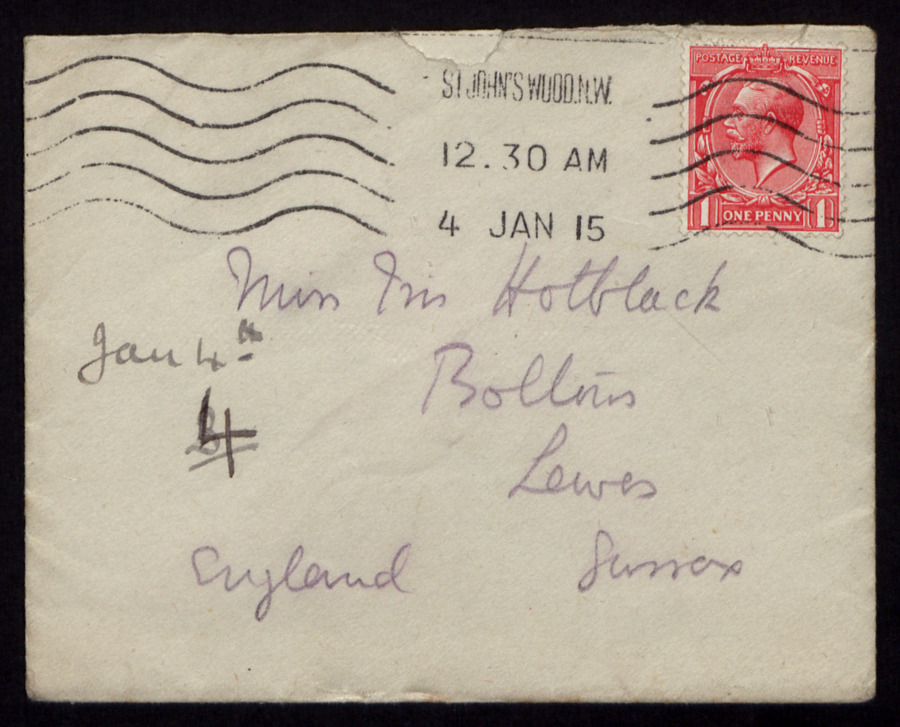 ST JOHN'S WOOD.N.W.
12.30 AM
4 JAN 15
POSTAGE REVENUE
1 ONE PENNY 1
Miss Iris Hotblack
Jan 4th
4
Lewes
England Sussex